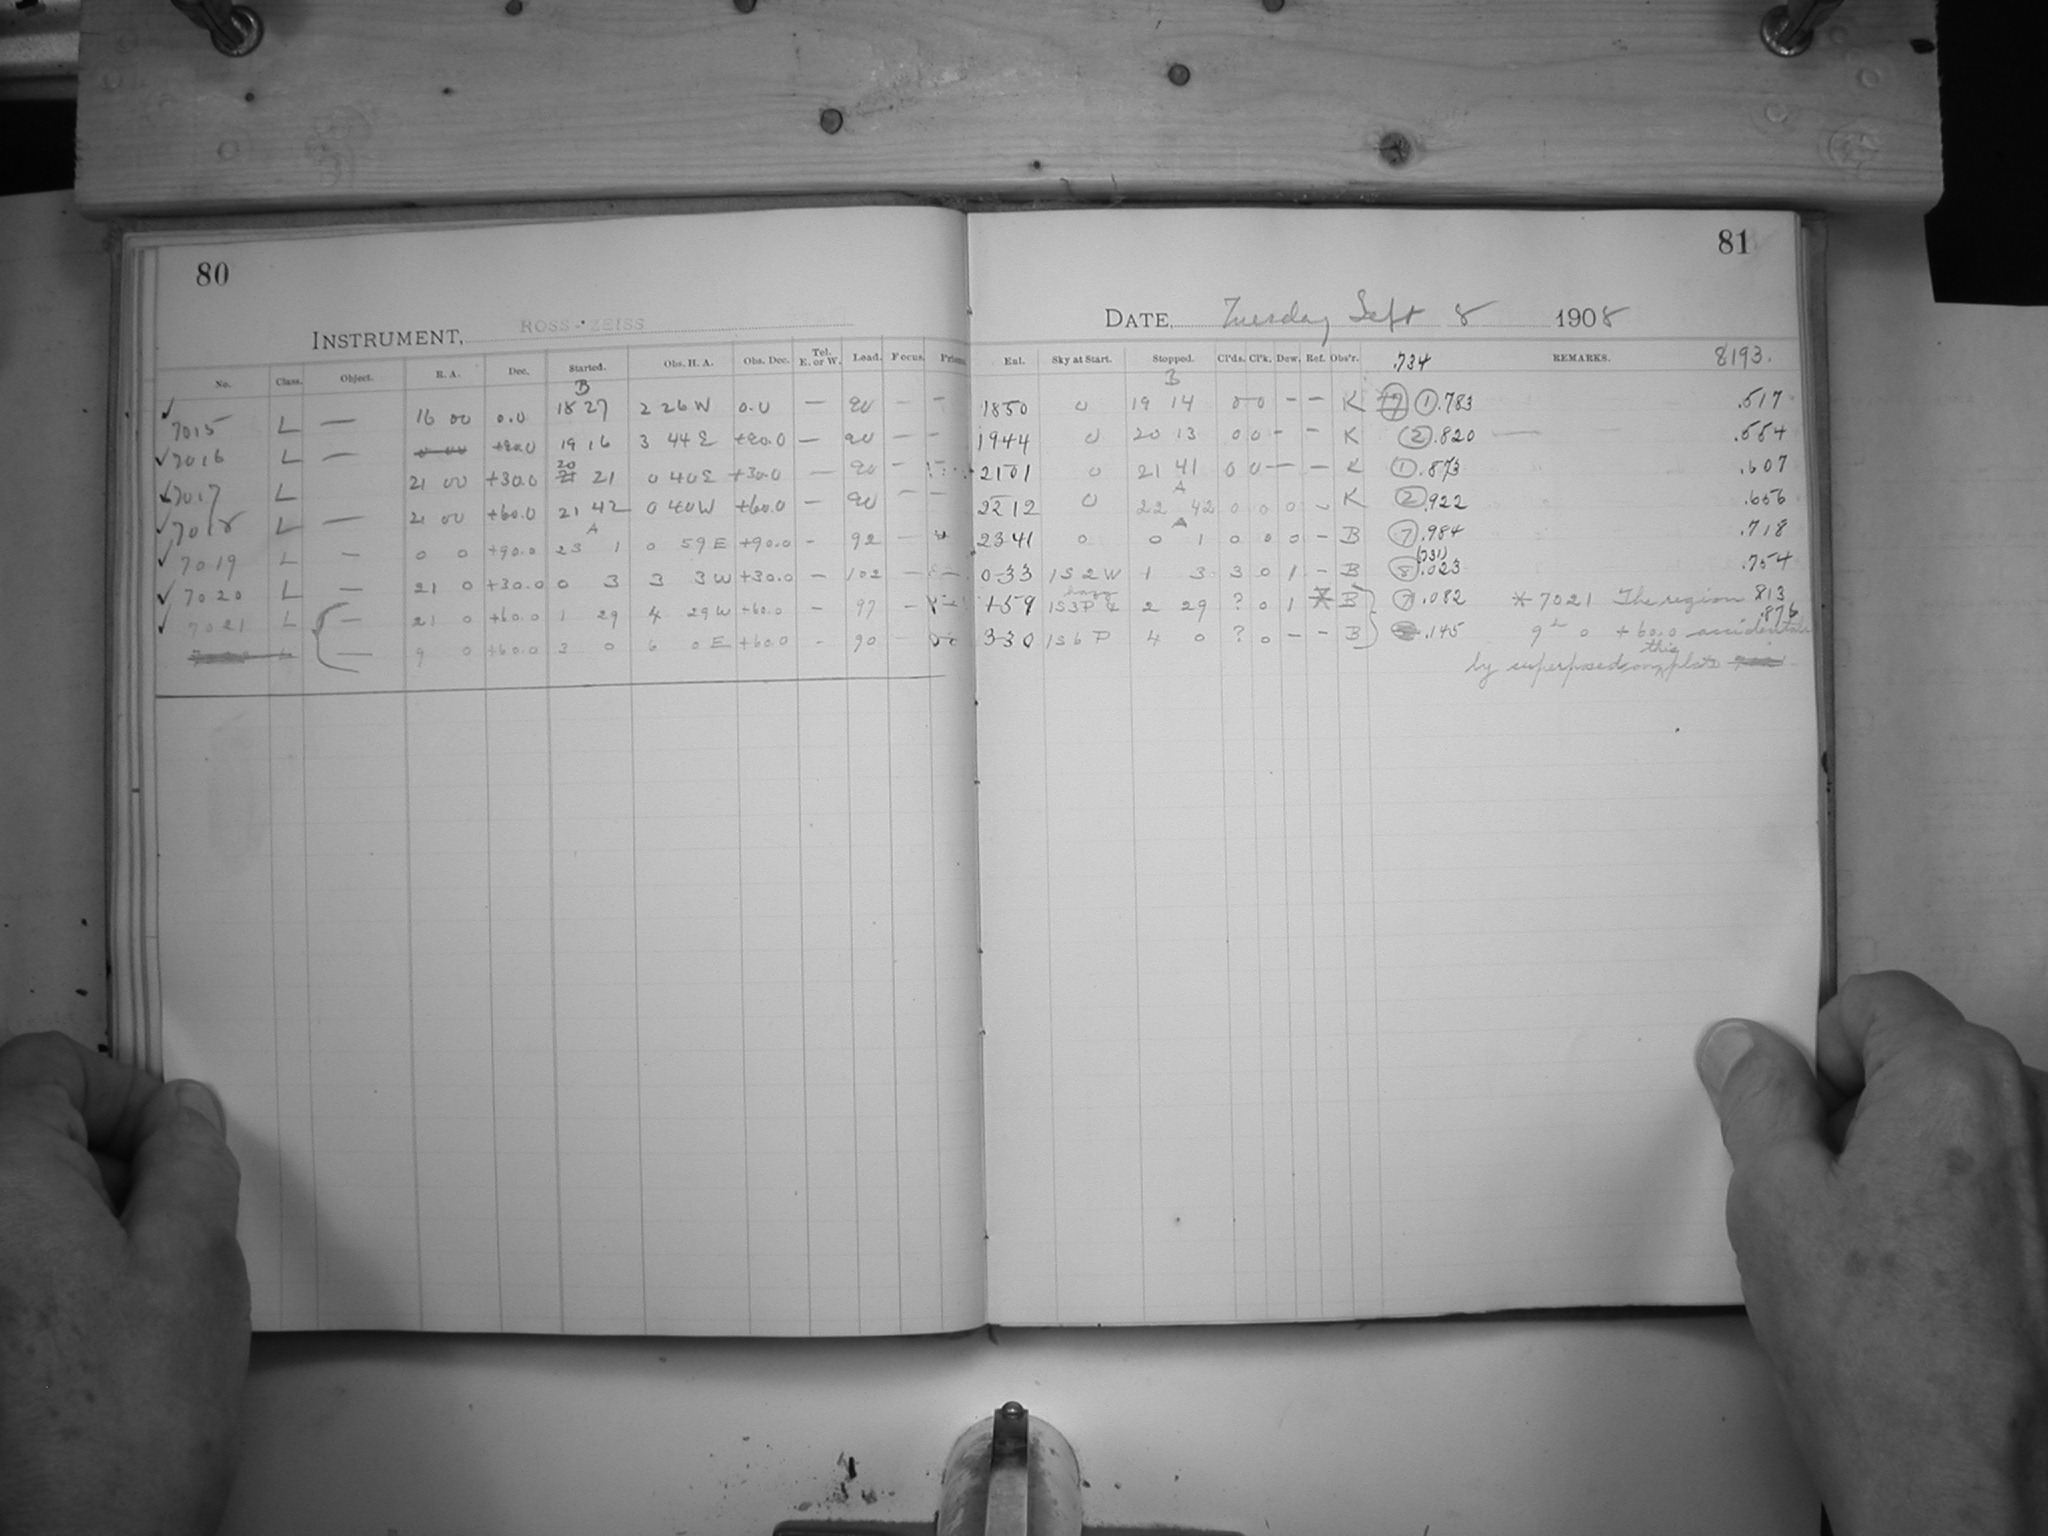 80
INSTRUMENT, ROSS-ZEISS
No. Class. Object. R. A. Dec. Started. Obs. H. A. Obs. Dec. Tel. E. or W. Load. Focus. Prism.
B
7015 L — 16 00 0.0 18 27 2 26 W 0.0 — 90 — —
7016 L — 0 00 +90.0 19 16 3 44 E +90.0 — 90 — —
7017 L 21 00 +30.0 20 21 0 40 E +30.0 — 90 —
7018 L — 21 00 +60.0 21 42 0 40 W +60.0 — 90 — —
A
7019 L — 0 0 +90.0 23 1 0 59 E +90.0 - 92 —
7020 L — 21 0 +30.0 0 3 3 3 W +30.0 — 102 —
7021 L — 21 0 +60.0 1 29 4 29 W +60.0 - 97 -
— 9 0 +60.0 3 0 6 0 E +60.0 - 90 -
81
DATE, Tuesday Sept 8 1908
Ent. Sky at Start. Stopped. Cl'ds. Cl'k. Dew. Ref. Obs'r. .734 REMARKS. 8193.
B
1850 0 19 14 0 0 - - K 1 .783 .517
1944 0 20 13 0 0 - - K 2 .820 — .554
2101 0 21 41 0 0 — — K 1 .873 .607
A
2212 0 22 42 0 0 0 - K 2 .922 .656
2341 0 0 1 0 0 0 - B 7 .984 .718
(731)
033 1S2W 1 3 3 0 1 - B 8 .023 .754
haze
159 1S3P 2 29 ? 0 1 * B 7 .082 * 7021 The region 813
330 1S6P 4 0 ? 0 - - B .145 9h 0 +60.0 accidental .876
by superposed on this plate